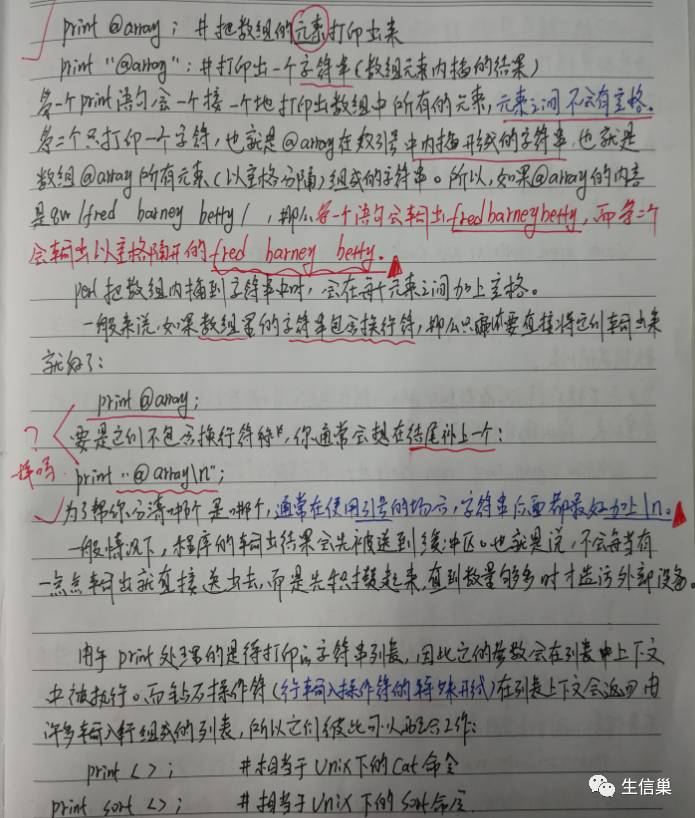 print @array; #把数组的元素打印出来
print "@array"; #打印出一个字符串(数组元素内插的结果)
第一个print语句会一个接一个地打印出数组中所有的元素,元素之间不会有空格.
第二个只打印一个字符,也就是@array在双引号中内插形成的字符串,也就是
数组@array所有元素(以空格分隔)组成的字符串。所以,如果@array的内容
是qw/fred barney betty/,那么第一个语句会输出fredbarneybetty,而第二个
会输出以空格隔开的fred barney betty.
perl把数组内插到字符串中时,会在每个元素之间加上空格。
一般来说,如果数组里的字符串包含换行符,那么只需要直接将它们输出来
就好了:
print @array;
?
要是它们不包含换行符,你通常会想在结尾补上一个:
print "@array\n";
为了帮你分清哪个是哪个,通常在使用引号的场合,字符串后面都最好加上\n。
一般情况下,程序的输出结果会先被送到缓冲区。也就是说,不会每当有
一点点输出就直接送出去,而是先积攒起来,直到数量够多时才造访外部设备。
由于print处理的是待打印的字符串列表,因此它的参数会在列表中上下文
中被执行。而钻石操作符(行输入操作符的特殊形式)在列表上下文会返回由
许多输入行组成的列表,所以它们彼此可以配合工作:
print <>; #相当于Unix下的Cat命令
print sort <>; #相当于Unix下的sort命令
生信巢